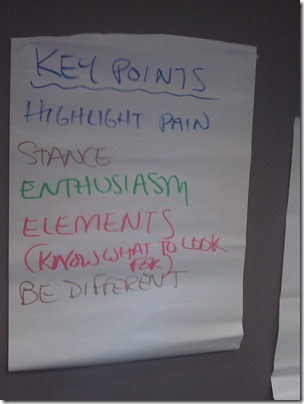 KEY POINTS
HIGHLIGHT PAIN
STANCE
ENTHUSIASM
ELEMENTS
(KNOW WHAT TO LOOK
FOR)
BE DIFFERENT